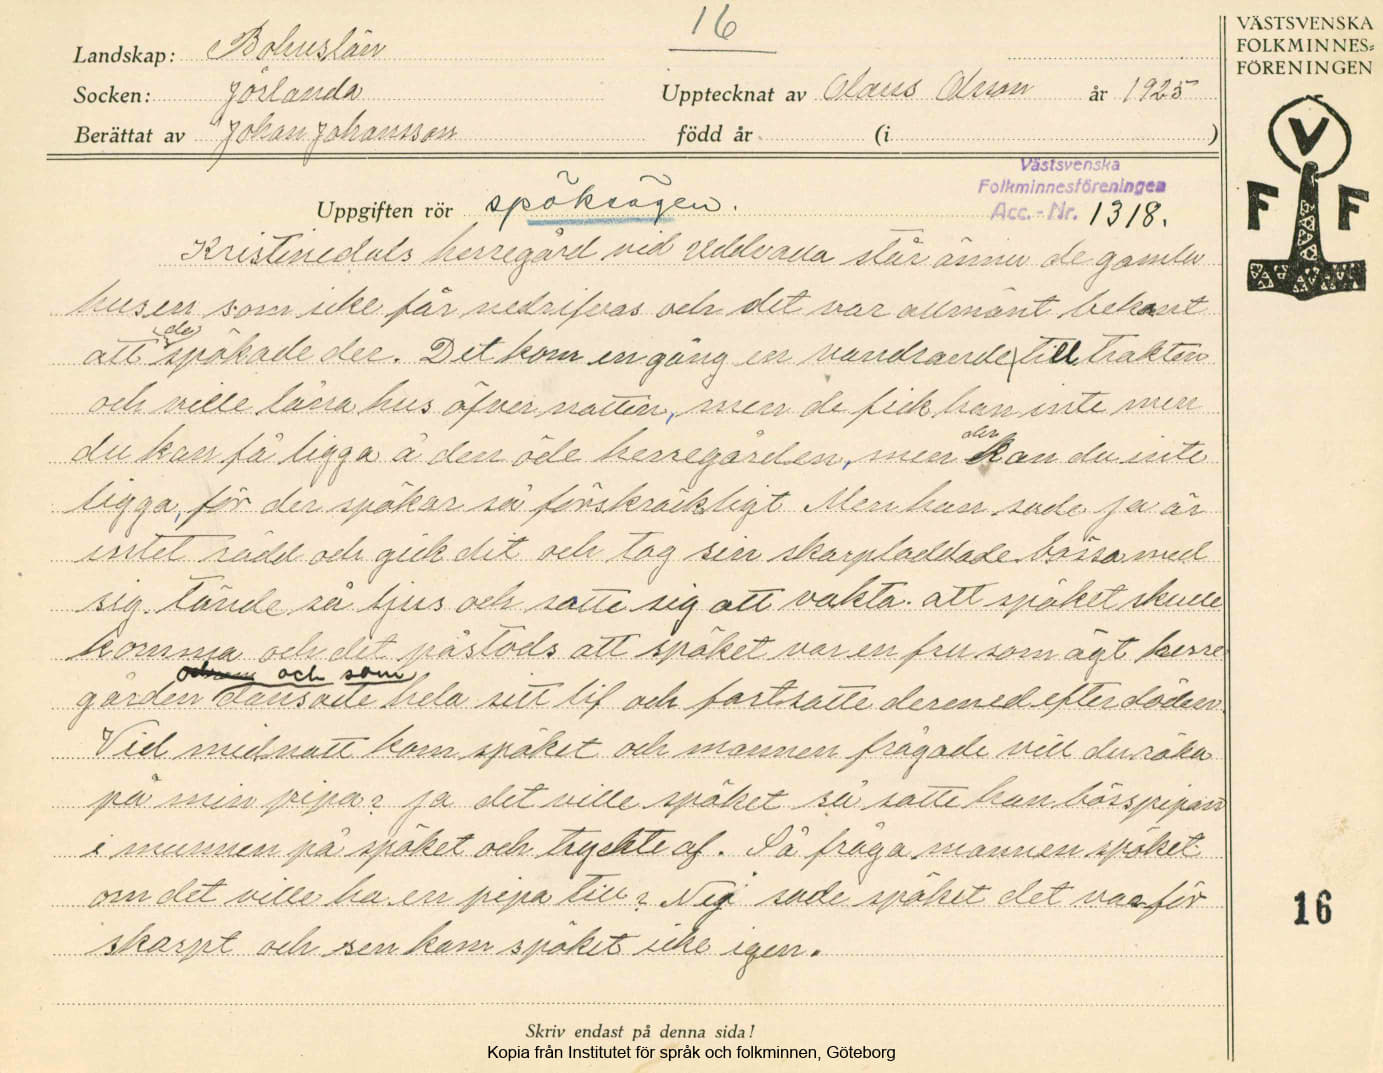 16
Landskap: Bohuslän
Socken: Jörlanda
Upptecknat av Olaus Olsson år 1925
Berättat av Johan Johansson född år (i )
VÄSTSVENSKA
FOLKMINNES=
FÖRENINGEN
V
F F
Västsvenska
Folkminnesföreningen
Acc.-Nr. 1318.
Uppgiften rör spöksägen.
Kristinedals herregård vid Uddvalla står ännu de gamla
husen som icke får nedrifvas och det var allmänt bekant
att de spökade der. Det kom en gång en vandraende till trakten
och ville låna hus öfver natten, men de fick han inte men
du kan få ligga å den öde herregården, men der kan du inte
ligga, för der spökar så förskräckligt Men han sade ja är
intet rädd och gick dit och tog sin skarpladdade bössa med
sig. tände så ljus och satte sig att vakta. att spöket skulle
komma och det påstods att spöket var en fru som ägt herre
gården och som dansade hela sitt lif och fortsatte dermed efter döden.
Vid midnatt kom spöket och mannen frågade vill du röka
på min pipa? ja det ville spöket så satte han bösspipan
i munnen på spöket och tryckte af. Så fråga mannen spöket
om det ville ha en pipa till? Nej sade spöket det var för
skarpt och sen kom spöket icke igen.
16
Skriv endast på denna sida!
Kopia från Institutet för språk och folkminnen, Göteborg